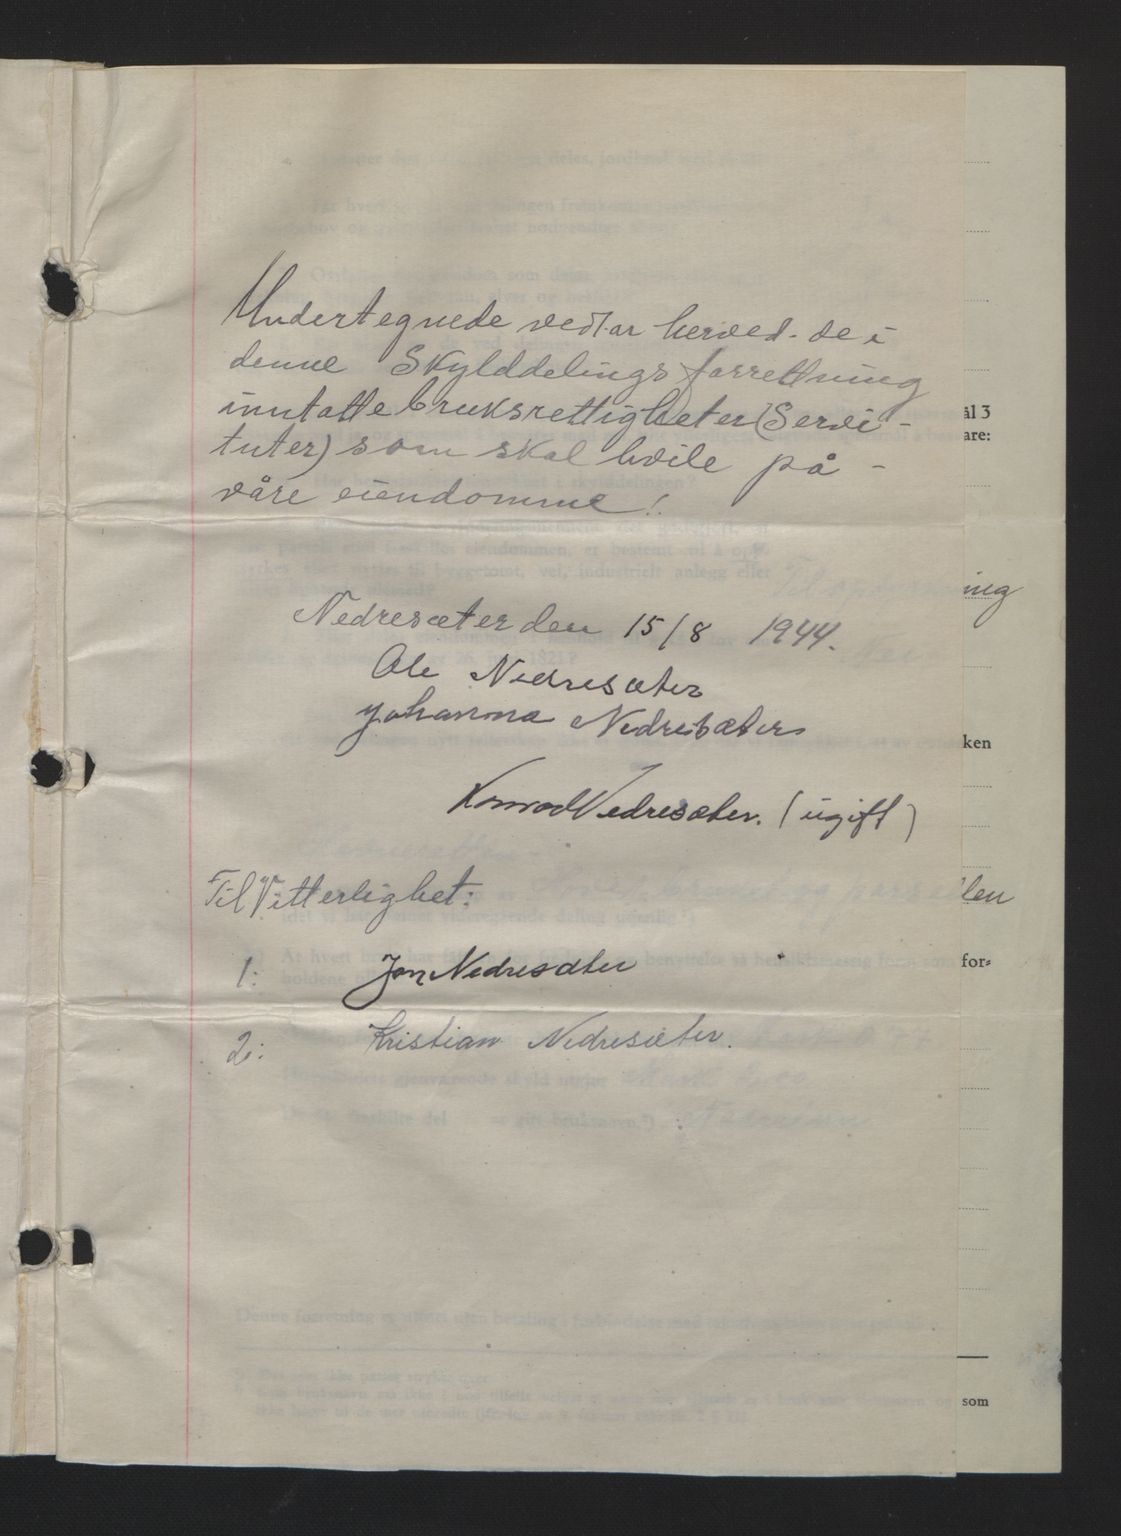 Undertegnede vedtar herved de i
denne Skylddelings forretning
inntatte bruksrettigheter (Servi-
tuter) som skal hvile på -
våre eiendomme!
Nedresæter den 15/8 1944.
Ole Nedresæter
Johanna Nedresæter
Konrad Nedresæter. (ugift)
Til Vitterlighet:
1: Jon Nedresæter
2: Kristian Nedresæter.
ål 3
are:
ing
ken
len
for-
som